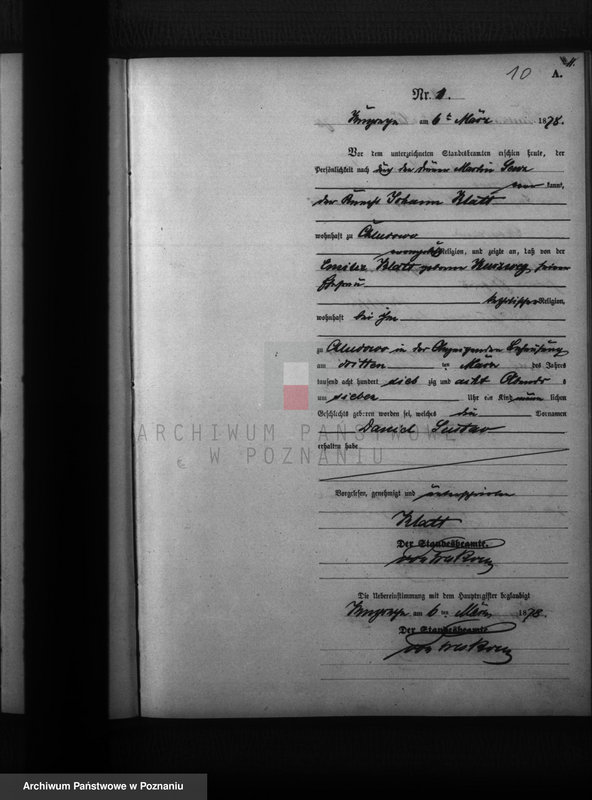 10
A.
Nr. 1.
am 6t März 1878.
Vor dem unterzeichneten Standesbeamten erschien heute, der
Persönlichkeit nach durch den Martin
kannt,
der Knecht Johann Klatt
wohnhaft zu
evangelischer Religion, und zeigte an, daß von der
Klatt geborenen seiner
Ehefrau
katholischer Religion,
wohnhaft bei ihm
zu in der Behausung
am dritten ten März des Jahres
tausend acht hundert sieb zig und acht Abends s
um sieben Uhr ein Kind männ lichen
Geschlechts geboren worden sei, welches die Vornamen
Daniel Gustav
erhalten habe
Vorgelesen, genehmigt und unterschrieben
Klatt
Der Standesbeamte.
Die Uebereinstimmung mit dem Hauptregister beglaubigt
am 6 ten März 1878.
Der Standesbeamte
ARCHIWUM PAŃSTWOWE
W POZNANIU
Archiwum Państwowe w Poznaniu